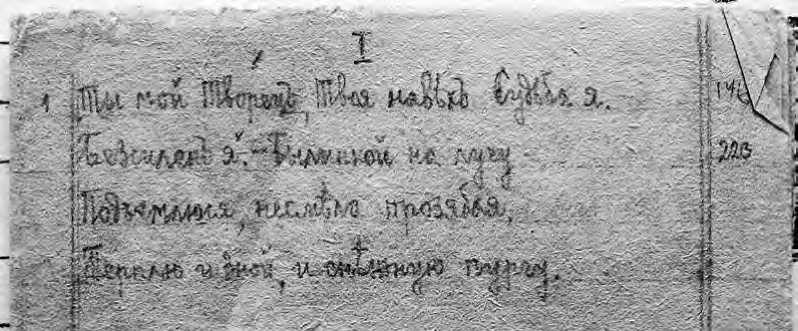 I
1 Ты мой Творецъ, Твоя навѣкъ судьба я.
Безсиленъ я. Былинкой на лугу
Подъемлюся, несмѣло прозябая,
Терплю и зной, и снѣжную пургу.
146
223